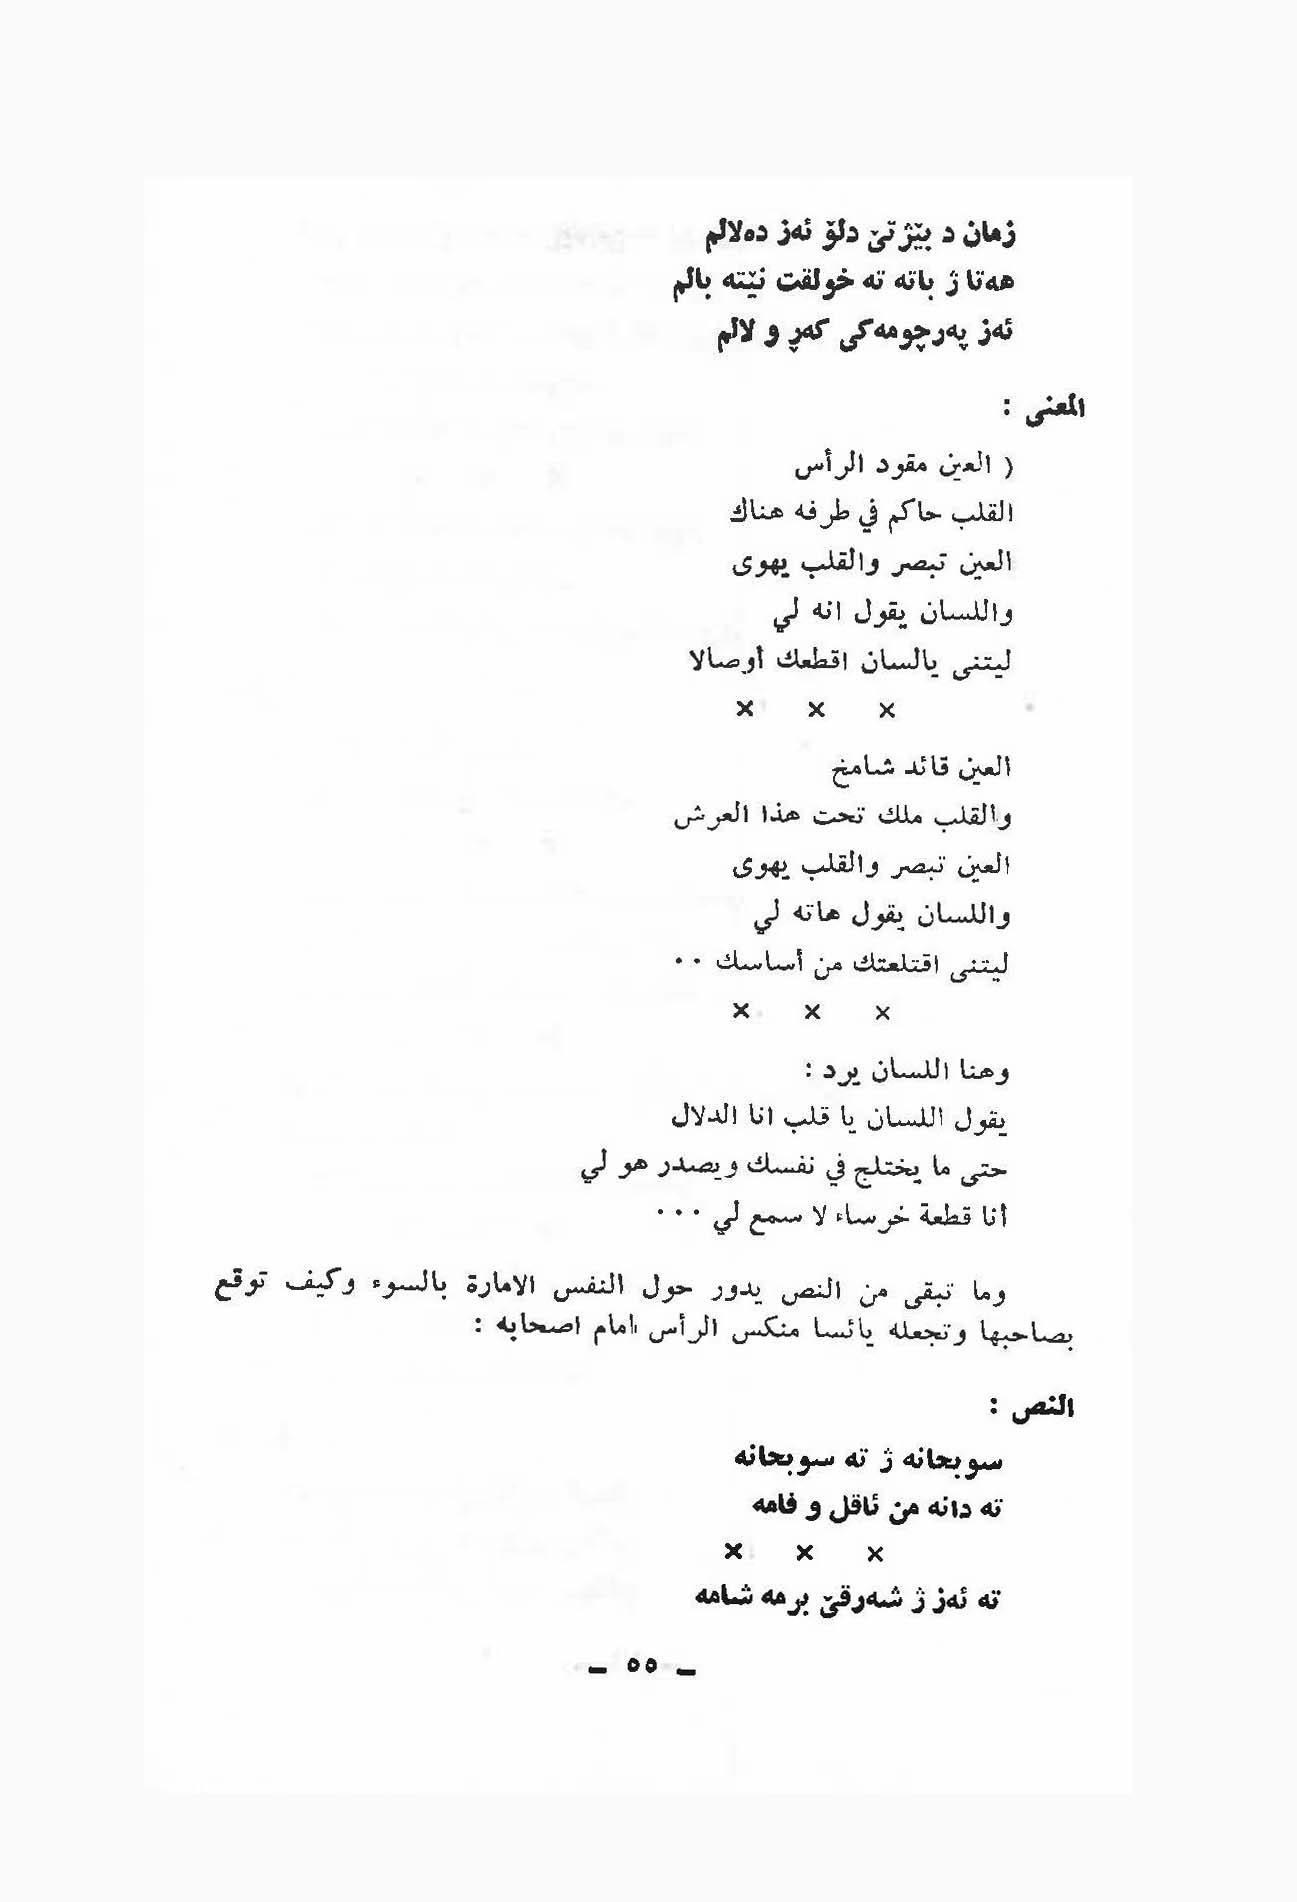 زمان د بێژتێ دلۆ ئەز دەلالم
هەتا ژ باتە تە خولقت نێتە بالم
ئەز پەرچومەکی کەڕ و لالم
المعنى :
( العين مقود الرأس
القلب حاكم في طرفه هناك
العين تبصر والقلب يهوى
واللسان يقول انه لي
ليتنى يالسان اقطعك أوصالا
× × ×
العين قائد شامخ
والقلب ملك تحت هذا العرش
العين تبصر والقلب يهوى
واللسان يقول هاته لي
ليتنى اقتلعتك من أساسك ٠٠
× × ×
وهنا اللسان يرد :
يقول اللسان يا قلب انا الدلال
حتى ما يختلج في نفسك ويصدر هو لي
أنا قطعة خرساء لا سمع لي ٠٠٠
وما تبقى من النص يدور حول النفس الامارة بالسوء وكيف توقع
بصاحبها وتجعله يائسا منكس الرأس امام اصحابه :
النص :
سوبحانه ژ ته سوبحانه
ته دانه من ئاقل و فامه
× × ×
ته ئەز ژ شەرقێ برمه شامه
ـ ٥٥ ـ